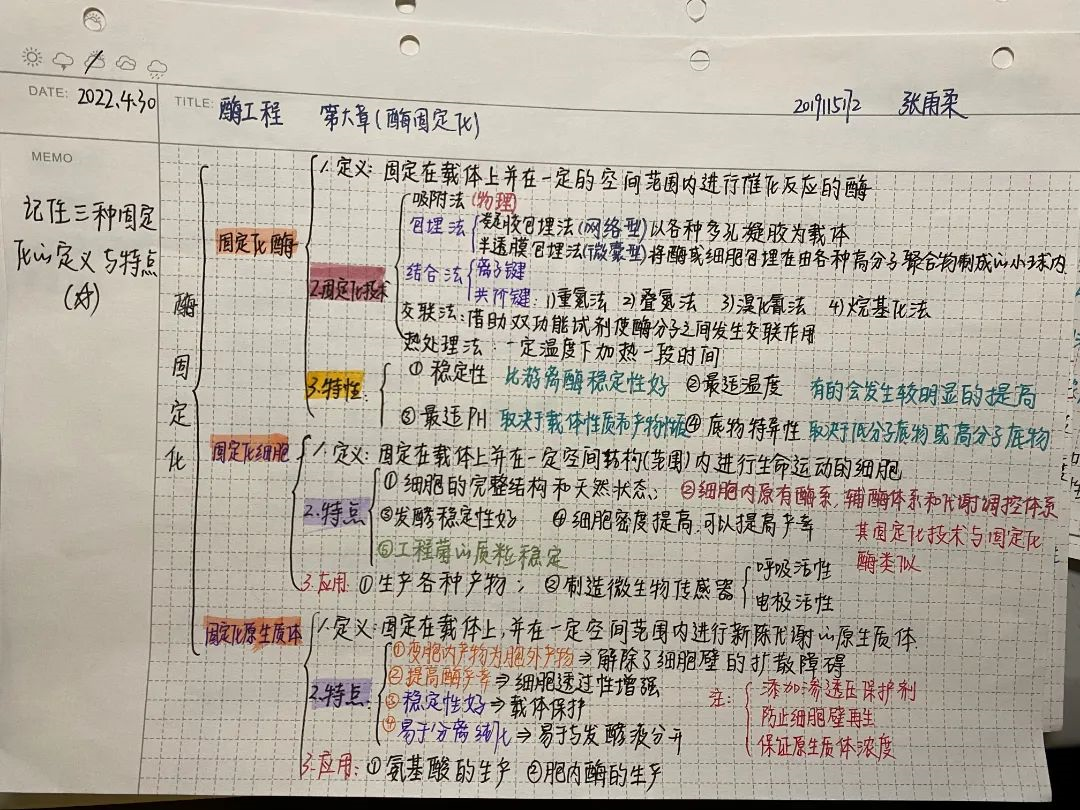 DATE: 2022.4.30
TITLE: 酶工程 第六章(酶固定化) 张雨柔
MEMO
记住三种固定
化的定义与特点
酶固定化
固定化酶
1.定义:固定在载体上并在一定的空间范围内进行催化反应的酶
2.固定化技术
吸附法(物理)
包埋法
凝胶包埋法(网络型)以各种多孔凝胶为载体
半透膜包埋法(微囊型)将酶或细胞包埋在由各种高分子聚合物制成的小球内
结合法
离子键
共价键:1)重氮法 2)叠氮法 3)溴化氰法 4)烷基化法
交联法:借助双功能试剂使酶分子之间发生交联作用
热处理法:一定温度下加热一段时间
3.特性:
①稳定性 比游离酶稳定性好 ②最适温度 有的会发生较明显的提高
③最适PH 取决于载体性质和产物性质 ④底物特异性 取决于低分子底物或高分子底物
固定化细胞
1.定义:固定在载体上并在一定空间结构(范围)内进行生命运动的细胞
2.特点
①细胞的完整结构和天然状态; ②细胞内原有酶系,辅酶体系和代谢调控体系
③发酵稳定性好 ④细胞密度提高,可以提高产率
⑤工程菌的质粒稳定
其固定化技术与固定化
酶类似
3.应用:①生产各种产物; ②制造微生物传感器
呼吸活性
电极活性
固定化原生质体
1.定义:固定在载体上,并在一定空间范围内进行新陈代谢的原生质体.
2.特点:
①变胞内产物为胞外产物⇒解除了细胞壁的扩散障碍
②提高酶产率⇒细胞透过性增强
③稳定性好⇒载体保护
④易于分离纯化⇒易于与发酵液分开
注:
添加渗透压保护剂
防止细胞壁再生
保证原生质体浓度
3.应用:①氨基酸的生产 ②胞内酶的生产